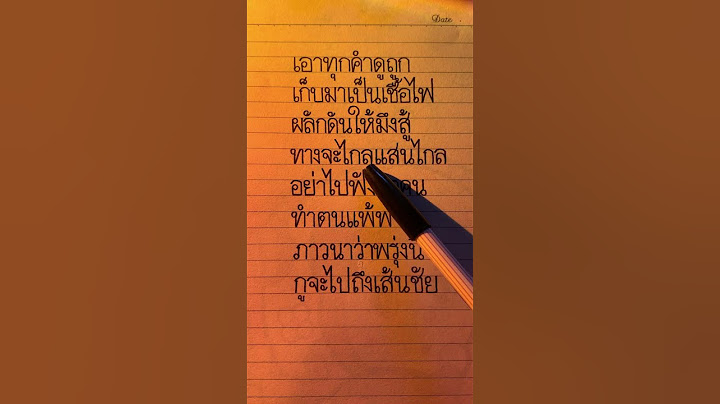 Date
เอาทุกคำดูถูก
เก็บมาเป็นเชื้อไฟ
ผลักดันให้มึงสู้
ทางจะไกลแสนไกล
อย่าไปฟัง
ทำตนแพ้พ
ภาวนาว่าพรุ่งนี้
กูจะไปถึงเส้นชัย